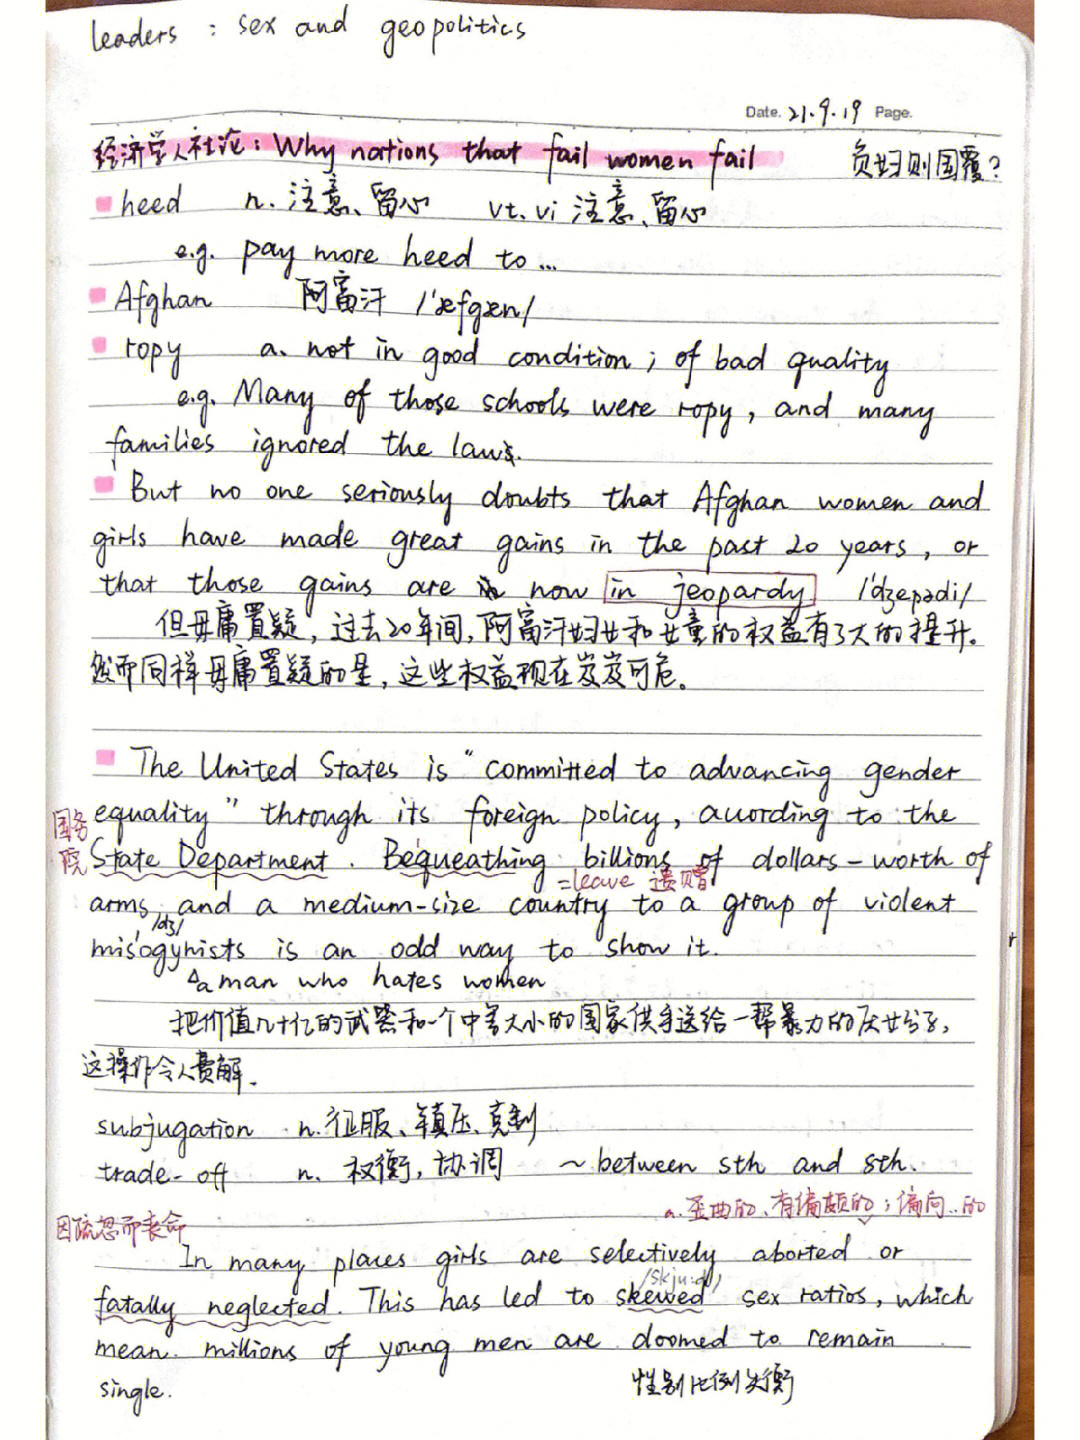 leaders : sex and geopolitics
Date. 21.9.19 Page.
经济学人社论: Why nations that fail women fail 负妇则国覆?
heed n. 注意、留心 vt. vi 注意、留心
e.g. pay more heed to ...
Afghan 阿富汗 /'æfgæn/
ropy a. not in good condition ; of bad quality
e.g. Many of those schools were ropy, and many
families ignored the laws.
But no one seriously doubts that Afghan women and
girls have made great gains in the past 20 years, or
that those gains are now in jeopardy /'dʒepədi/
但毋庸置疑, 过去20年间, 阿富汗妇女和女童的权益有了大的提升。
然而同样毋庸置疑的是, 这些权益现在岌岌可危。
The United States is "committed to advancing gender
国务院 equality" through its foreign policy, according to the
State Department. Bequeathing billions of dollars-worth of
=leave 遗赠
arms and a medium-size country to a group of violent
/dʒ/
mis'ogynists is an odd way to show it.
a man who hates women
把价值几十亿的武器和一个中等大小的国家供手送给一帮暴力的厌女分子,
这操作令人费解.
subjugation n. 征服、镇压、克制
trade-off n. 权衡, 协调 ~between sth and sth.
a. 歪曲的、有偏颇的; 偏向..的
因疏忽而丧命
In many places girls are selectively aborted or
/skju:d/
fatally neglected. This has led to skewed sex ratios, which
mean millions of young men are doomed to remain
single. 性别比例失衡